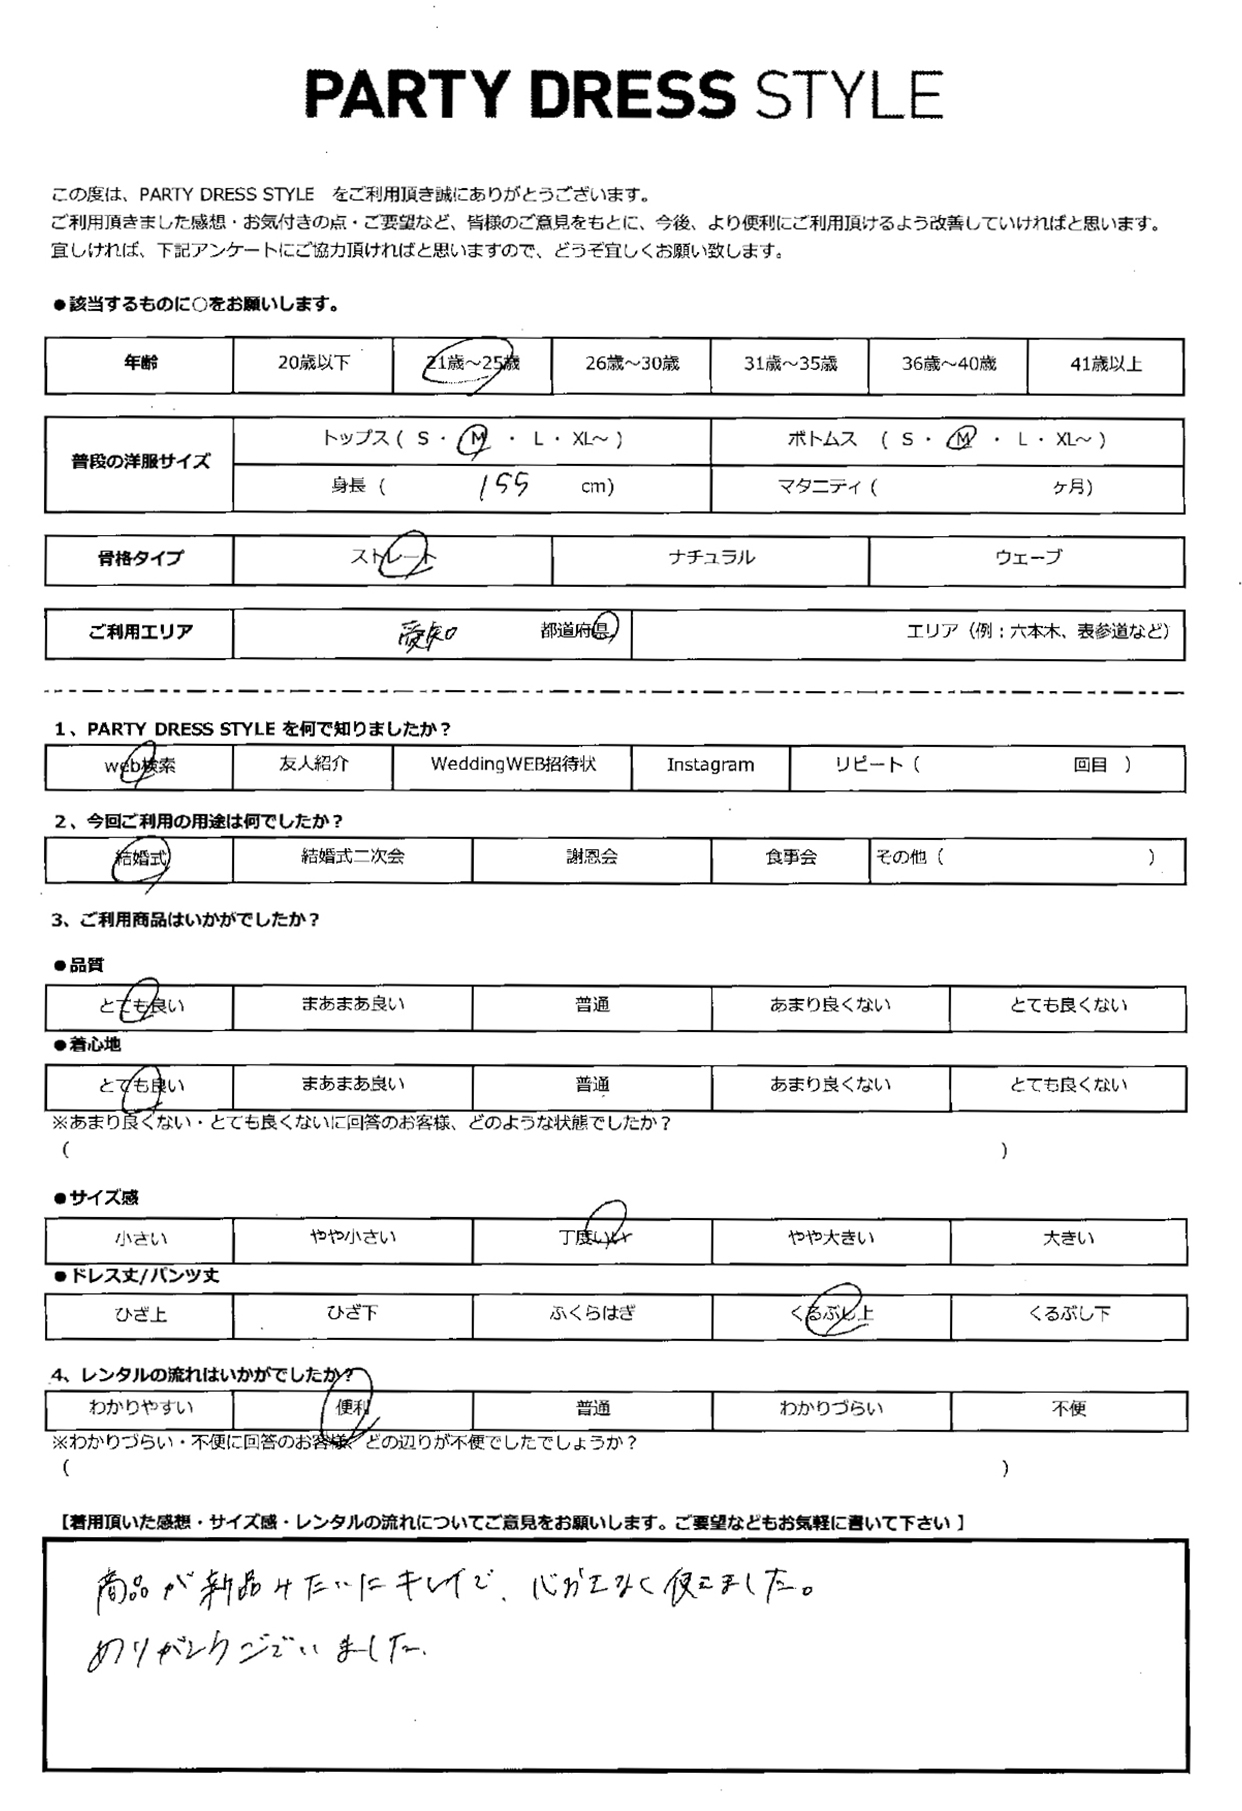 PARTY DRESS STYLE
この度は、PARTY DRESS STYLE をご利用頂き誠にありがとうございます。
ご利用頂きました感想・お気付きの点・ご要望など、皆様のご意見をもとに、今後、より便利にご利用頂けるよう改善していければと思います。
宜しければ、下記アンケートにご協力頂ければと思いますので、どうぞ宜しくお願い致します。
●該当するものに○をお願いします。
年齢 20歳以下 21歳～25歳 26歳～30歳 31歳～35歳 36歳～40歳 41歳以上
普段の洋服サイズ
トップス ( S ・ M ・ L ・ XL～ ) ボトムス ( S ・ M ・ L ・ XL～ )
身長 ( 155 cm) マタニティ ( ヶ月)
骨格タイプ ストレート ナチュラル ウェーブ
ご利用エリア 愛知 都道府県 エリア（例：六本木、表参道など）
1、PARTY DRESS STYLE を何で知りましたか？
web検索 友人紹介 WeddingWEB招待状 Instagram リピート（ 回目 ）
2、今回ご利用の用途は何でしたか？
結婚式 結婚式二次会 謝恩会 食事会 その他（ ）
3、ご利用商品はいかがでしたか？
●品質
とても良い まあまあ良い 普通 あまり良くない とても良くない
●着心地
とても良い まあまあ良い 普通 あまり良くない とても良くない
※あまり良くない・とても良くないに回答のお客様、どのような状態でしたか？
( )
●サイズ感
小さい やや小さい 丁度いい やや大きい 大きい
●ドレス丈/パンツ丈
ひざ上 ひざ下 ふくらはぎ くるぶし上 くるぶし下
4、レンタルの流れはいかがでしたか？
わかりやすい 便利 普通 わかりづらい 不便
※わかりづらい・不便に回答のお客様、どの辺りが不便でしたでしょうか？
( )
【着用頂いた感想・サイズ感・レンタルの流れについてご意見をお願いします。ご要望などもお気軽に書いて下さい 】
商品が新品みたいにキレイで、心おきなく使えました。
ありがとうございました。